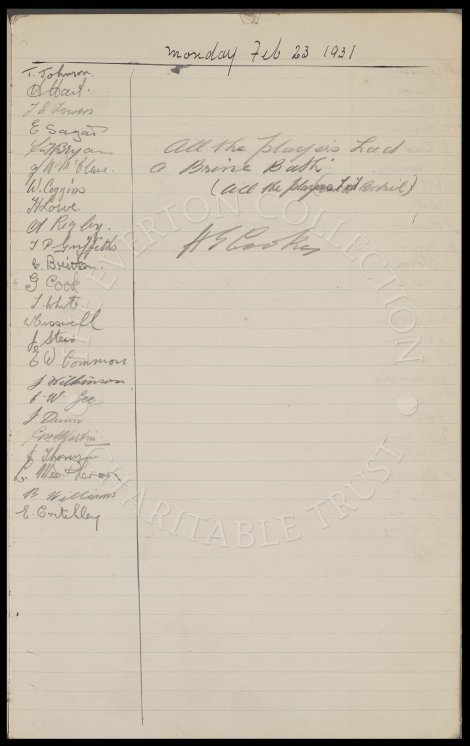 Monday Feb 23 1931
T. Johnson
J S Towers
E Sagar
W. Coggins
H Lowe
A Rigby.
T P Griffiths
C. Britton.
G Cook
T. White.
J Stein
E W Common
J Wilkinson
C. W. Gee
J Dunn
Geo Martin
J Thomson
B Williams
E. Critchley
All the players had
a Brine Bath
(All the players had
H E Cooke
THE EVERTON COLLECTION
CHARITABLE TRUST